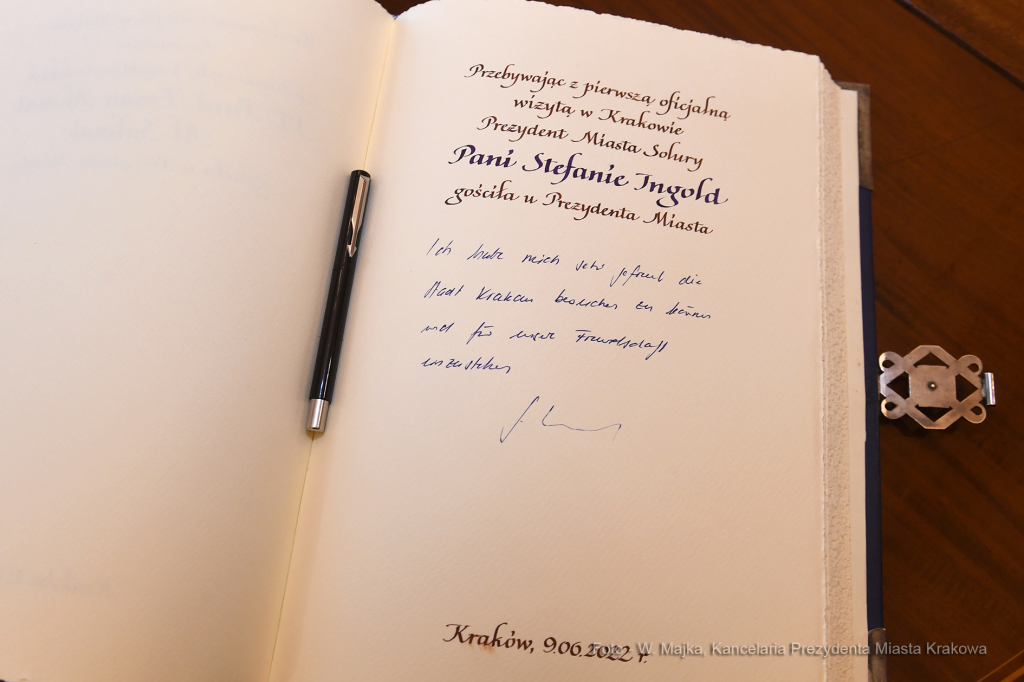 Przebywając z pierwszą oficjalną
wizytą w Krakowie
Prezydent Miasta Solury
Pani Stefanie Ingold
gościła u Prezydenta Miasta
Ich habe mich sehr gefreut die
Stadt Krakau besuchen zu können
und für unsere Freundschaft
einzustehen
Kraków, 9.06.2022 r.
Foto: W. Majka, Kancelaria Prezydenta Miasta Krakowa